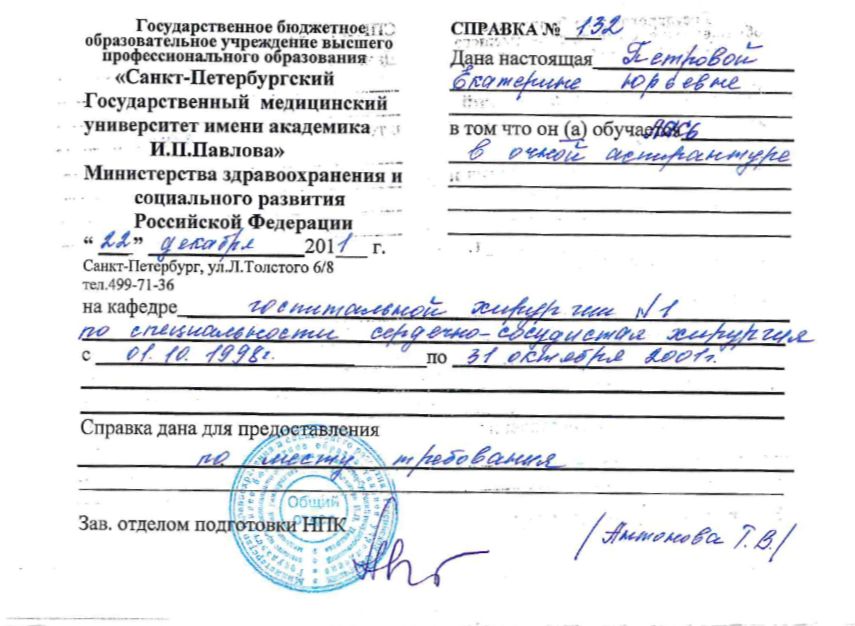 Государственное бюджетное
образовательное учреждение высшего
профессионального образования
«Санкт-Петербургский
Государственный медицинский
университет имени академика
И.П.Павлова»
Министерства здравоохранения и
социального развития
Российской Федерации
“ 22 ” декабря 2011 г.
Санкт-Петербург, ул.Л.Толстого 6/8
тел.499-71-36
СПРАВКА № 132
Дана настоящая Петровой
Екатерине Юрьевне
в том что он (а) обучалась
в очной аспирантуре
на кафедре госпитальной хирургии N1
по специальности сердечно-сосудистая хирургия
с 01.10.1998г. по 31 октября 2001г.
Справка дана для предоставления
по месту требования
Общий
отдел
Зав. отделом подготовки НПК /Антонова Т.В./